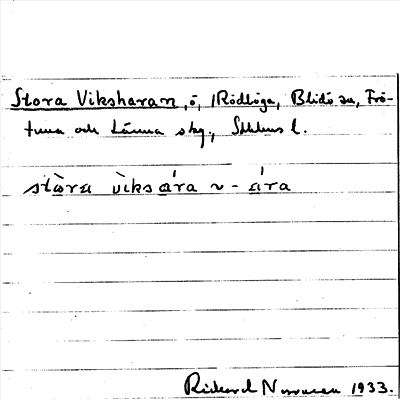 Stora Viksharan, ö, i Rödlöga, Blidö sn, Frö-
tuna och Länna skg., Sthlms l.
stòra vìksára ~ -ára
Rickard 1933.